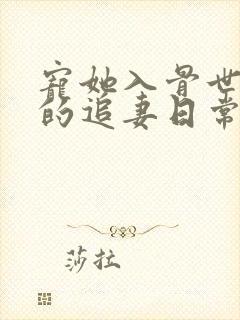 寵她入骨世
的追妻日常
莎拉